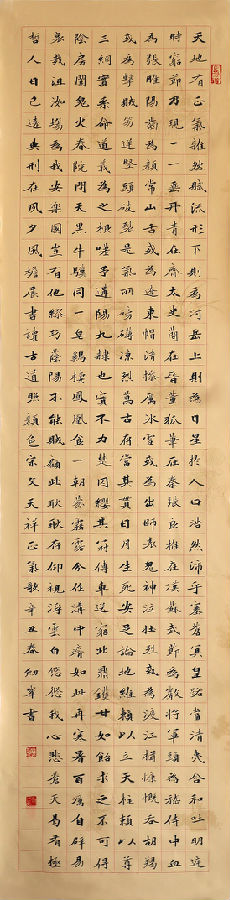 天地有正氣雜然賦流形下則為河嶽上則為日星於人曰浩然沛乎塞蒼冥皇路當清夷含和吐明庭
時窮節乃現一一垂丹青在齊太史簡在晉董狐筆在秦張良椎在漢蘇武節為嚴將軍頭為嵇侍中血
為張睢陽齒為顏常山舌或為遼東帽清操厲冰雪或為出師表鬼神泣壯烈或為渡江楫慷慨吞胡羯
或為擊賊笏逆豎頭破裂是氣所磅礴凜烈萬古存當其貫日月生死安足論地維賴以立天柱賴以尊
三綱實系命道義為之根嗟予遘陽九隸也實不力楚囚纓其冠傳車送窮北鼎鑊甘如飴求之不可得
陰房闃鬼火春院閟天黑牛驥同一皂雞棲鳳凰食一朝蒙霧露分作溝中瘠如此再寒暑百沴自辟易
哀哉沮洳場為我安樂國豈有他繆巧陰陽不能賊顧此耿耿在仰視浮雲白悠悠我心悲蒼天曷有極
哲人日已遠典刑在夙夕風檐展書讀古道照顏色宋文天祥正氣歌辛丑春幼書